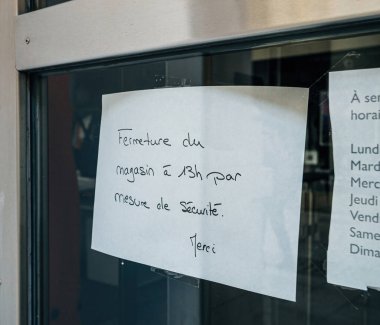 Fermeture du
magasin à 13h par
mesure de sécurité.
Merci
À se
horai
Lund
Mard
Merc
Jeudi
Vend
Same
Dima